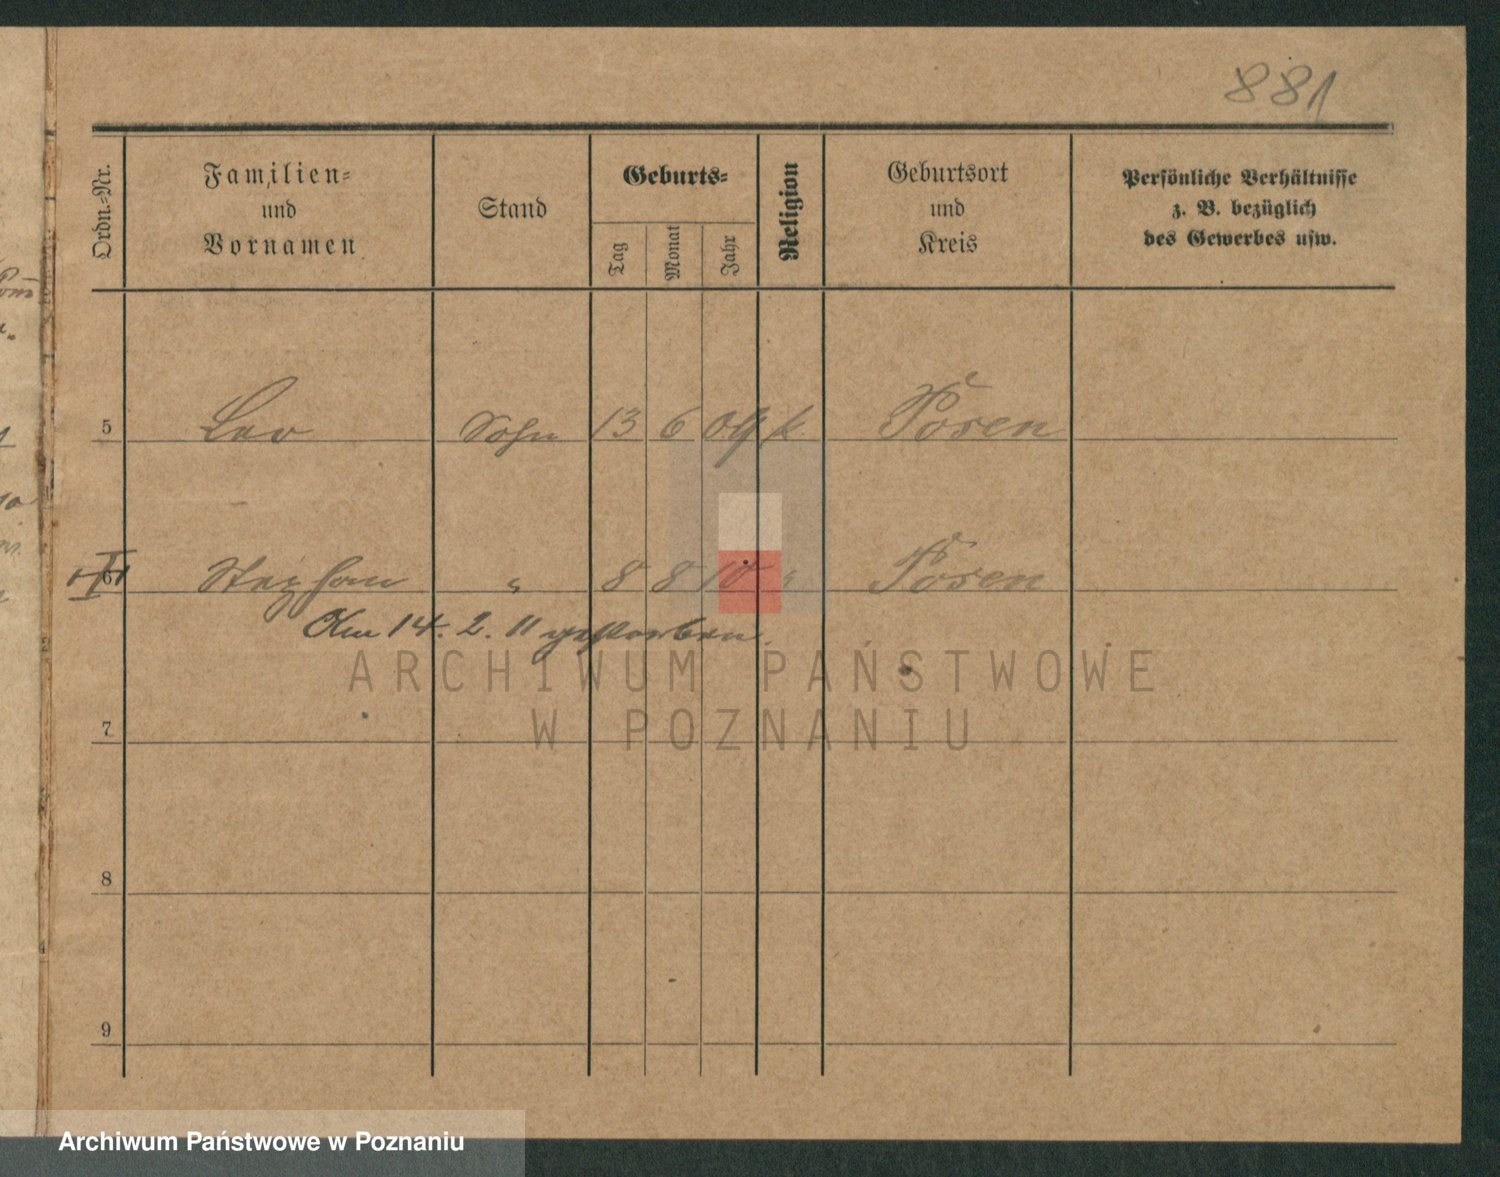 881
Ordn.-Nr.
Familien-
und
Vornamen
Stand
Geburts-
Tag
Monat
Jahr
Religion
Geburtsort
und
Kreis
Persönliche Verhältnisse
z. B. bezüglich
des Gewerbes usw.
5 Leo Sohn 13 6 09 k. Posen
6 Stephan " 8 8 10 " Posen
Am 14. 2. 11 gestorben.
7
8
9
ARCHIWUM PAŃSTWOWE
W POZNANIU
Archiwum Państwowe w Poznaniu